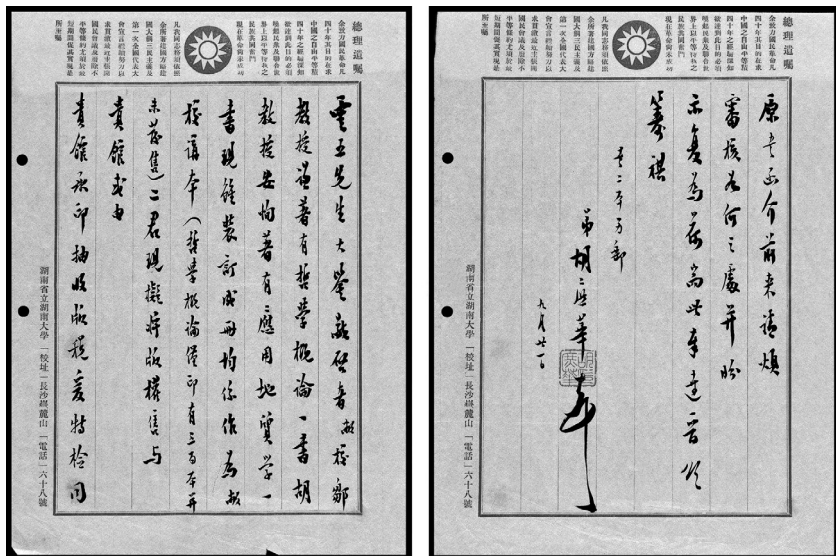 總理遺囑
余致力國民革命凡
四十年其目的在求
中國之自由平等積
四十年之經驗深知
欲達到此目的必須
喚起民衆及聯合世
界上以平等待我之
民族共同奮鬥
現在革命尚未成功
凡我同志務須依照
余所著建國方略建
國大綱三民主義及
第一次全國代表大
會宣言繼續努力以
求貫澈最近主張開
國民會議及廢除不
平等條約尤須於最
短期間促其實現是
所至囑
雲五先生大鑒敬啓者敝校鄒
教授謙著有哲學概論一書胡
教授安恂著有應用地質學一
書現雖裝訂成册均係作爲敝
校講本(哲學概論僅印有三百本并
未發售)二君現擬將版權售與
貴館或由
貴館承印抽收版稅爰特檢同
湖南省立湖南大學 「校址」長沙嶽麓山 「電話」六十八號
總理遺囑
余致力國民革命凡
四十年其目的在求
中國之自由平等積
四十年之經驗深知
欲達到此目的必須
喚起民衆及聯合世
界上以平等待我之
民族共同奮鬥
現在革命尚未成功
凡我同志務須依照
余所著建國方略建
國大綱三民主義及
第一次全國代表大
會宣言繼續努力以
求貫澈最近主張開
國民會議及廢除不
平等條約尤須於最
短期間促其實現是
所至囑
原書函介前來請煩
審核如何之處并盼
示复爲荷耑此奉達頌
祺
書二本另郵
弟胡庶華
胡庶華
九月廿一日
湖南省立湖南大學 「校址」長沙嶽麓山 「電話」六十八號